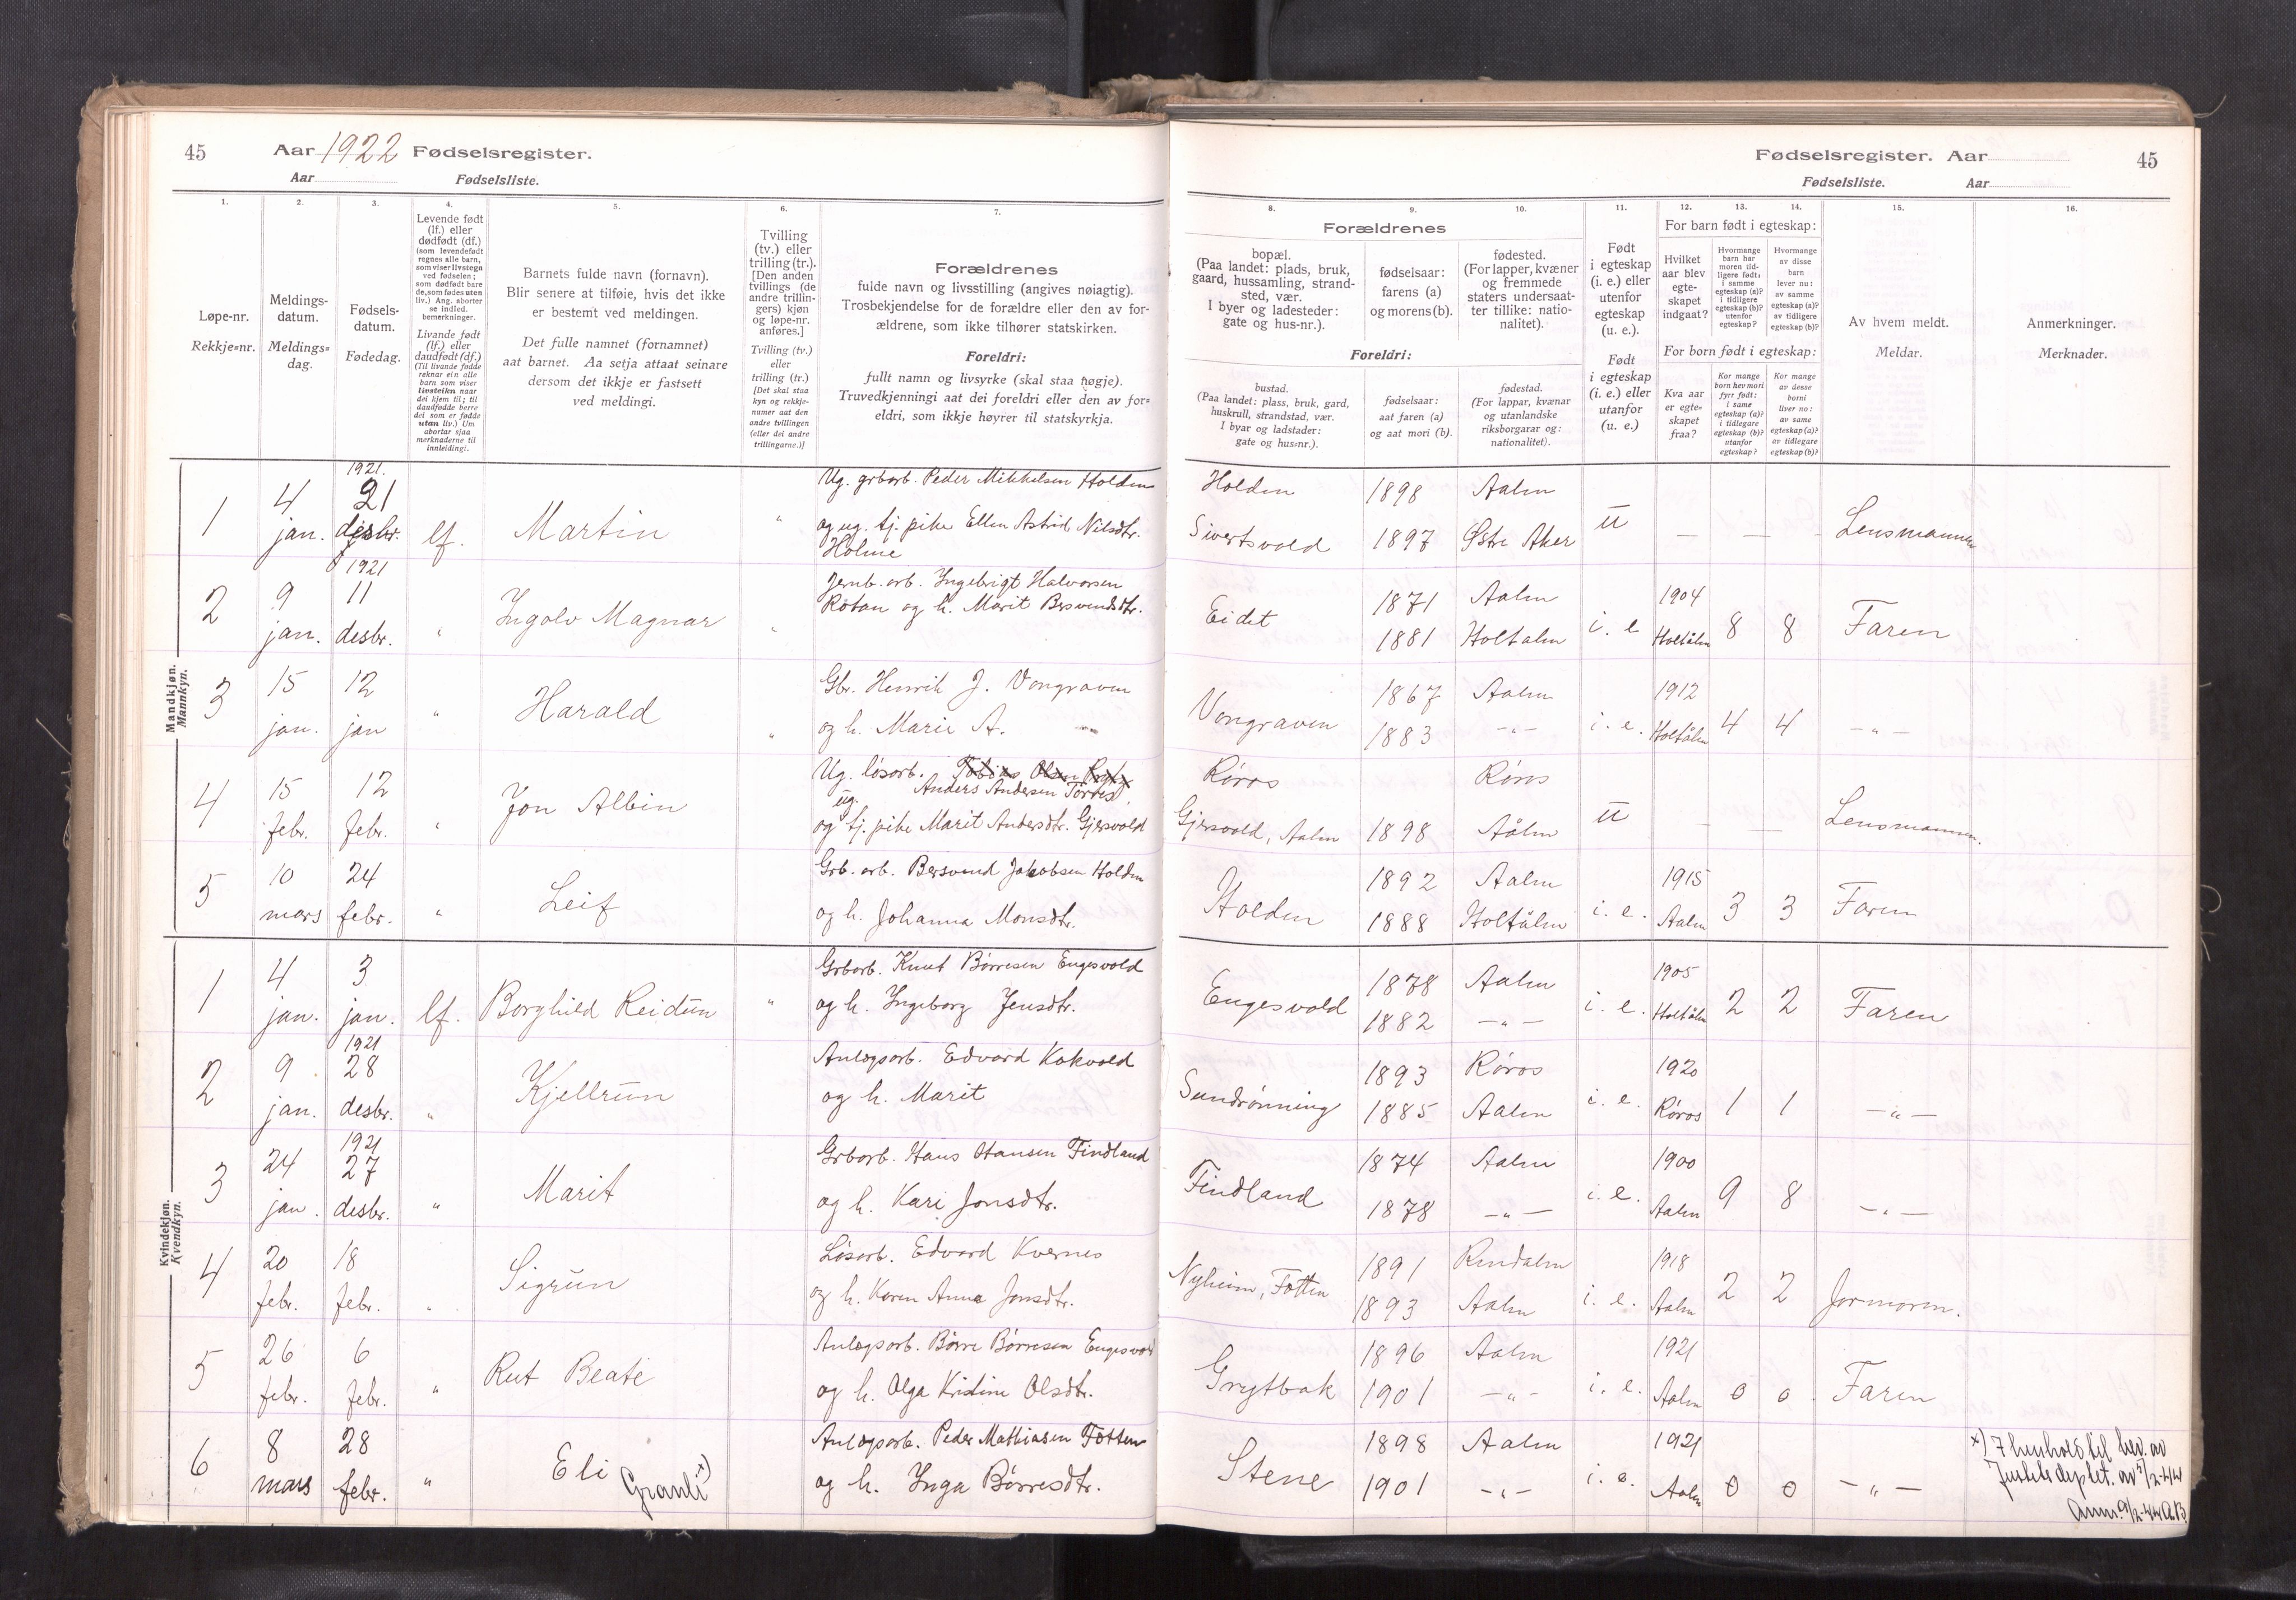 45 Aar 1922 Fødselsregister.
Aar Fødselsliste.
Fødselsregister. Aar 45
Fødselsliste. Aar
1. 2. 3. 4. 5. 6. 7. 8. 9. 10. 11. 12. 13. 14. 15. 16.
Løpe-nr.
Rekkje=nr.
Meldings-
datum.
Meldings=
dag.
Fødsels-
datum.
Fødedag.
Levende født
(lf.) eller
dødfødt (df.)
(som levendefødt
regnes alle barn,
som viser livstegn
ved fødselen;
som dødfødt bare
de, som fødes uten
liv.) Ang. aborter
se indled.
bemerkninger.
Livande født
(lf.) eller
daudfødt (df.)
(Til livande fødde
reknar ein alle
barn som viser
livsteikn naar
dei kjem til; til
daudfødde berre
dei som er fødde
utan liv.) Um
abortar sjaa
merknaderne til
innleidingi.
Barnets fulde navn (fornavn).
Blir senere at tilføie, hvis det ikke
er bestemt ved meldingen.
Det fulle namnet (fornamnet)
aat barnet. Aa setja attaat seinare
dersom det ikkje er fastsett
ved meldingi.
Tvilling
(tv.) eller
trilling (tr.).
[Den anden
tvillings (de
andre trillin-
gers) kjøn
og løpe-nr.
anføres.]
Tvilling (tv.)
eller
trilling (tr.)
[Det skal staa
kyn og rekkje-
numer aat den
andre tvillingen
(eller dei andre
trillingarne.)]
Forældrenes
fulde navn og livsstilling (angives nøiagtig).
Trosbekjendelse for de forældre eller den av for-
ældrene, som ikke tilhører statskirken.
Foreldri:
fullt namn og livsyrke (skal staa nøgje).
Truvedkjenningi aat dei foreldri eller den av for=
eldri, som ikkje høyrer til statskyrkja.
Forældrenes
bopæl.
(Paa landet: plads, bruk,
gaard, hussamling, strand-
sted, vær.
I byer og ladesteder:
gate og hus-nr.).
fødselsaar:
farens (a)
og morens (b).
fødested.
(For lapper, kvæner
og fremmede
staters undersaat-
ter tillike: natio-
nalitet).
Foreldri:
bustad.
(Paa landet: plass, bruk, gard,
huskrull, strandstad, vær.
I byar og ladstader:
gate og hus=nr.).
fødselsaar:
aat faren (a)
og aat mori (b).
fødestad.
(For lappar, kvænar
og utanlandske
riksborgarar og:
nationalitet).
Født
i egteskap
(i. e.) eller
utenfor
egteskap
(u. e.).
Født
i egteskap
(i. e.) eller
utanfor
(u. e.)
For barn født i egteskap:
Hvilket
aar blev
egte-
skapet
indgaat?
Hvormange
barn har
moren tid-
ligere født:
i samme
egteskap (a)?
i tidligere
egteskap (b)?
utenfor
egteskap?
Hvormange
av disse
barn
lever nu:
av samme
egteskap (a)?
av tidligere
egteskap (b)?
For born født i egteskap:
Kva aar
er egte=
skapet
fraa?
Kor mange
born hev mori
fyrr født:
i same
egteskap (a)?
i tidlegare
egteskap (b)?
utanfor
egteskap?
Kor mange
av desse
borni
liver no:
av same
egteskap (a)?
av tidlegare
egteskap (b)?
Av hvem meldt.
Meldar.
Anmerkninger.
Merknader.
Mandkjøn.
Mannkyn.
1921. Ug. grbarb. Peder Mikkelsen Holden Holden 1898 Aalen
1 4 jan. 21 desbr. lf. Martin " og ug. tj. pike Ellen Astrid Nilsdtr. Sivertsvold 1897 Østr Aker u — — - Lensmannen
Holme
1921 Jernb. arb. Ingebrigt Halvorsen 1871 Aalen 1904
2 9 jan. 11 desbr. " Ingolv Magnar " Rotan og h. Marit Bersvendsdtr. Eidet 1881 Holtalen i. e Holtålen 8 8 Faren
3 15 jan. 12 jan " Harald Gbr. Henrik J. Vongraven 1867 Aalen 1912
" og h. Marie A. — Vongraven 1883 -"- i. e. Holtålen 4 4 -"-
Ug. løsarb. Røros Røros
Anders Andersen Torres
4 15 febr. 12 febr. " Jon Albin ug. og tj. pike Marit Andersdtr. Gjersvold Gjersvold, Aalen 1898 Aålen u — — Lensmannen.
5 10 mars 24 febr. " Leif Grb. arb. Bersvend Jakobsen Holden 1892 Aalen 1915
og h. Johanna Monsdtr. Holden 1888 Holtålen i. e. Aalen 3 3 Faren
Kvindekjøn.
Kvendkyn.
1 4 jan. 3 jan. lf. Borghild Reidun " Grbarb. Knut Børresen Engesvold 1878 Aalen 1905
og h. Ingeborg Jensdtr. Engesvold 1882 -"- i. e. Holtålen 2 2 Faren
1921
2 9 jan. 28 desbr. " Kjellrun Anlægsarb. Edvard Kokvold 1893 Røros 1920
og h. Marit Sundrønning 1885 Aalen i. e. Røros 1 1 -"-
1921
3 24 jan. 27 desbr. " Marit Grbarb. Hans Hansen Findland 1874 Aalen 1900
og h. Kari Jonsdtr. Findland 1878 -"- i. e. Aalen 9 8 -"-
4 20 febr. 18 febr. " Sigrun Løsarb. Edvard Kvernes 1891 Rindalen 1918
og h. Karen Anna Jonsdtr. Nyheim, Fotten 1893 Aalen i. e. Aalen 2 2 Jormoren.
5 26 febr. 6 febr. " Rut Beate Anlægsarb. Børre Børresen Engesvold 1896 Aalen 1921
og h. Olga Kristine Olsdtr. Grytbak 1901 -"- i. e. Aalen 0 0 Faren
6 8 mars 28 febr. " Eli Granli x) Anlægsarb. Peder Mathiasen Fotten 1898 Aalen 1921
og h. Inga Børresdtr. Stene 1901 -"- i. e. Aalen 0 0 -"-
x) I henhold til bev. av
Justitsdeptet. av 5/2-44
Anm. 9/2-44 A.B.